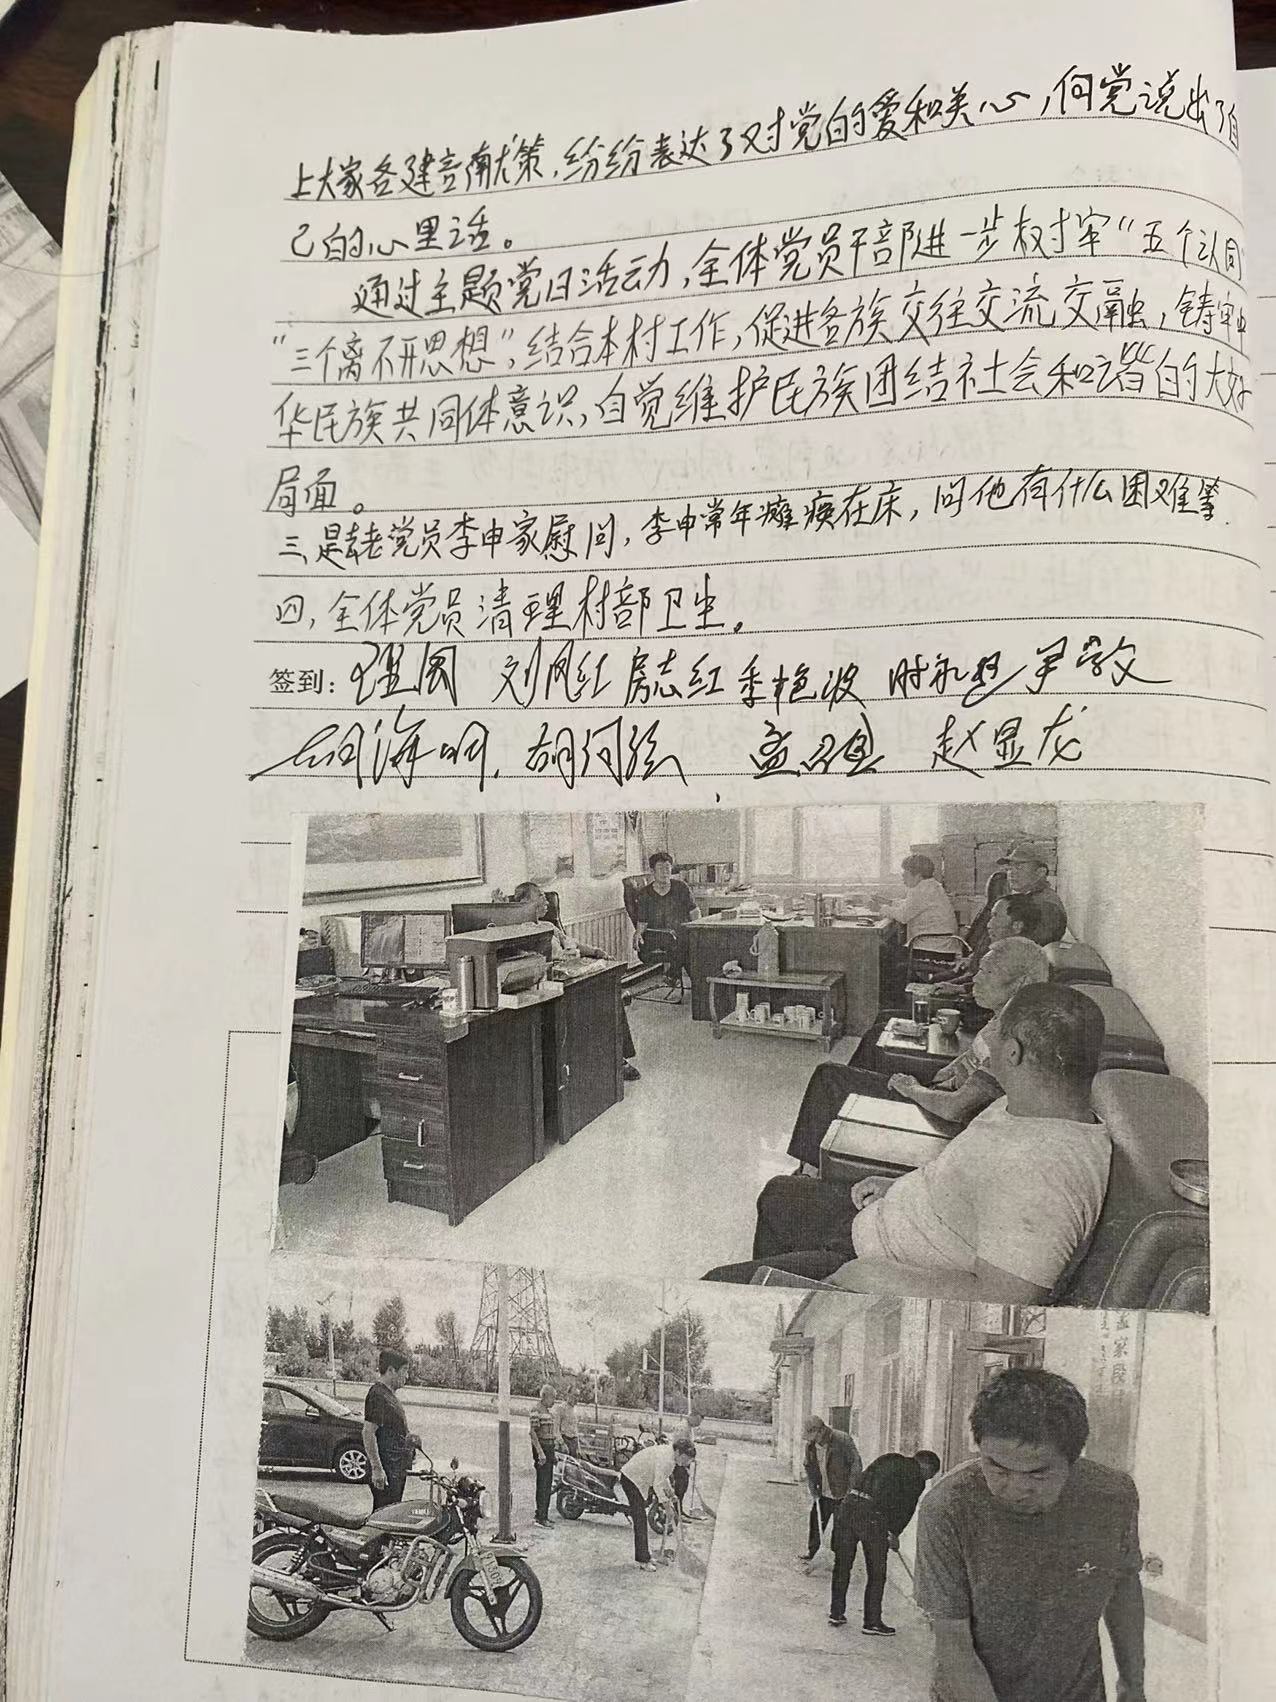 上大家各建言献策,纷纷表达了对党的爱和关心,向党说出了自
己的心里话。
通过主题党日活动,全体党员干部进一步树牢“五个认同”
“三个离不开思想”,结合本村工作,促进各族交往交流交融,铸牢中
华民族共同体意识,自觉维护民族团结社会和谐的大好
局面。
三,是去老党员李申家慰问,李申常年瘫痪在床,问他有什么困难等.
四,全体党员清理村部卫生。
签到: 刘凤红 房志红 季艳波 尹学文
胡海明, 赵显龙
孟家段